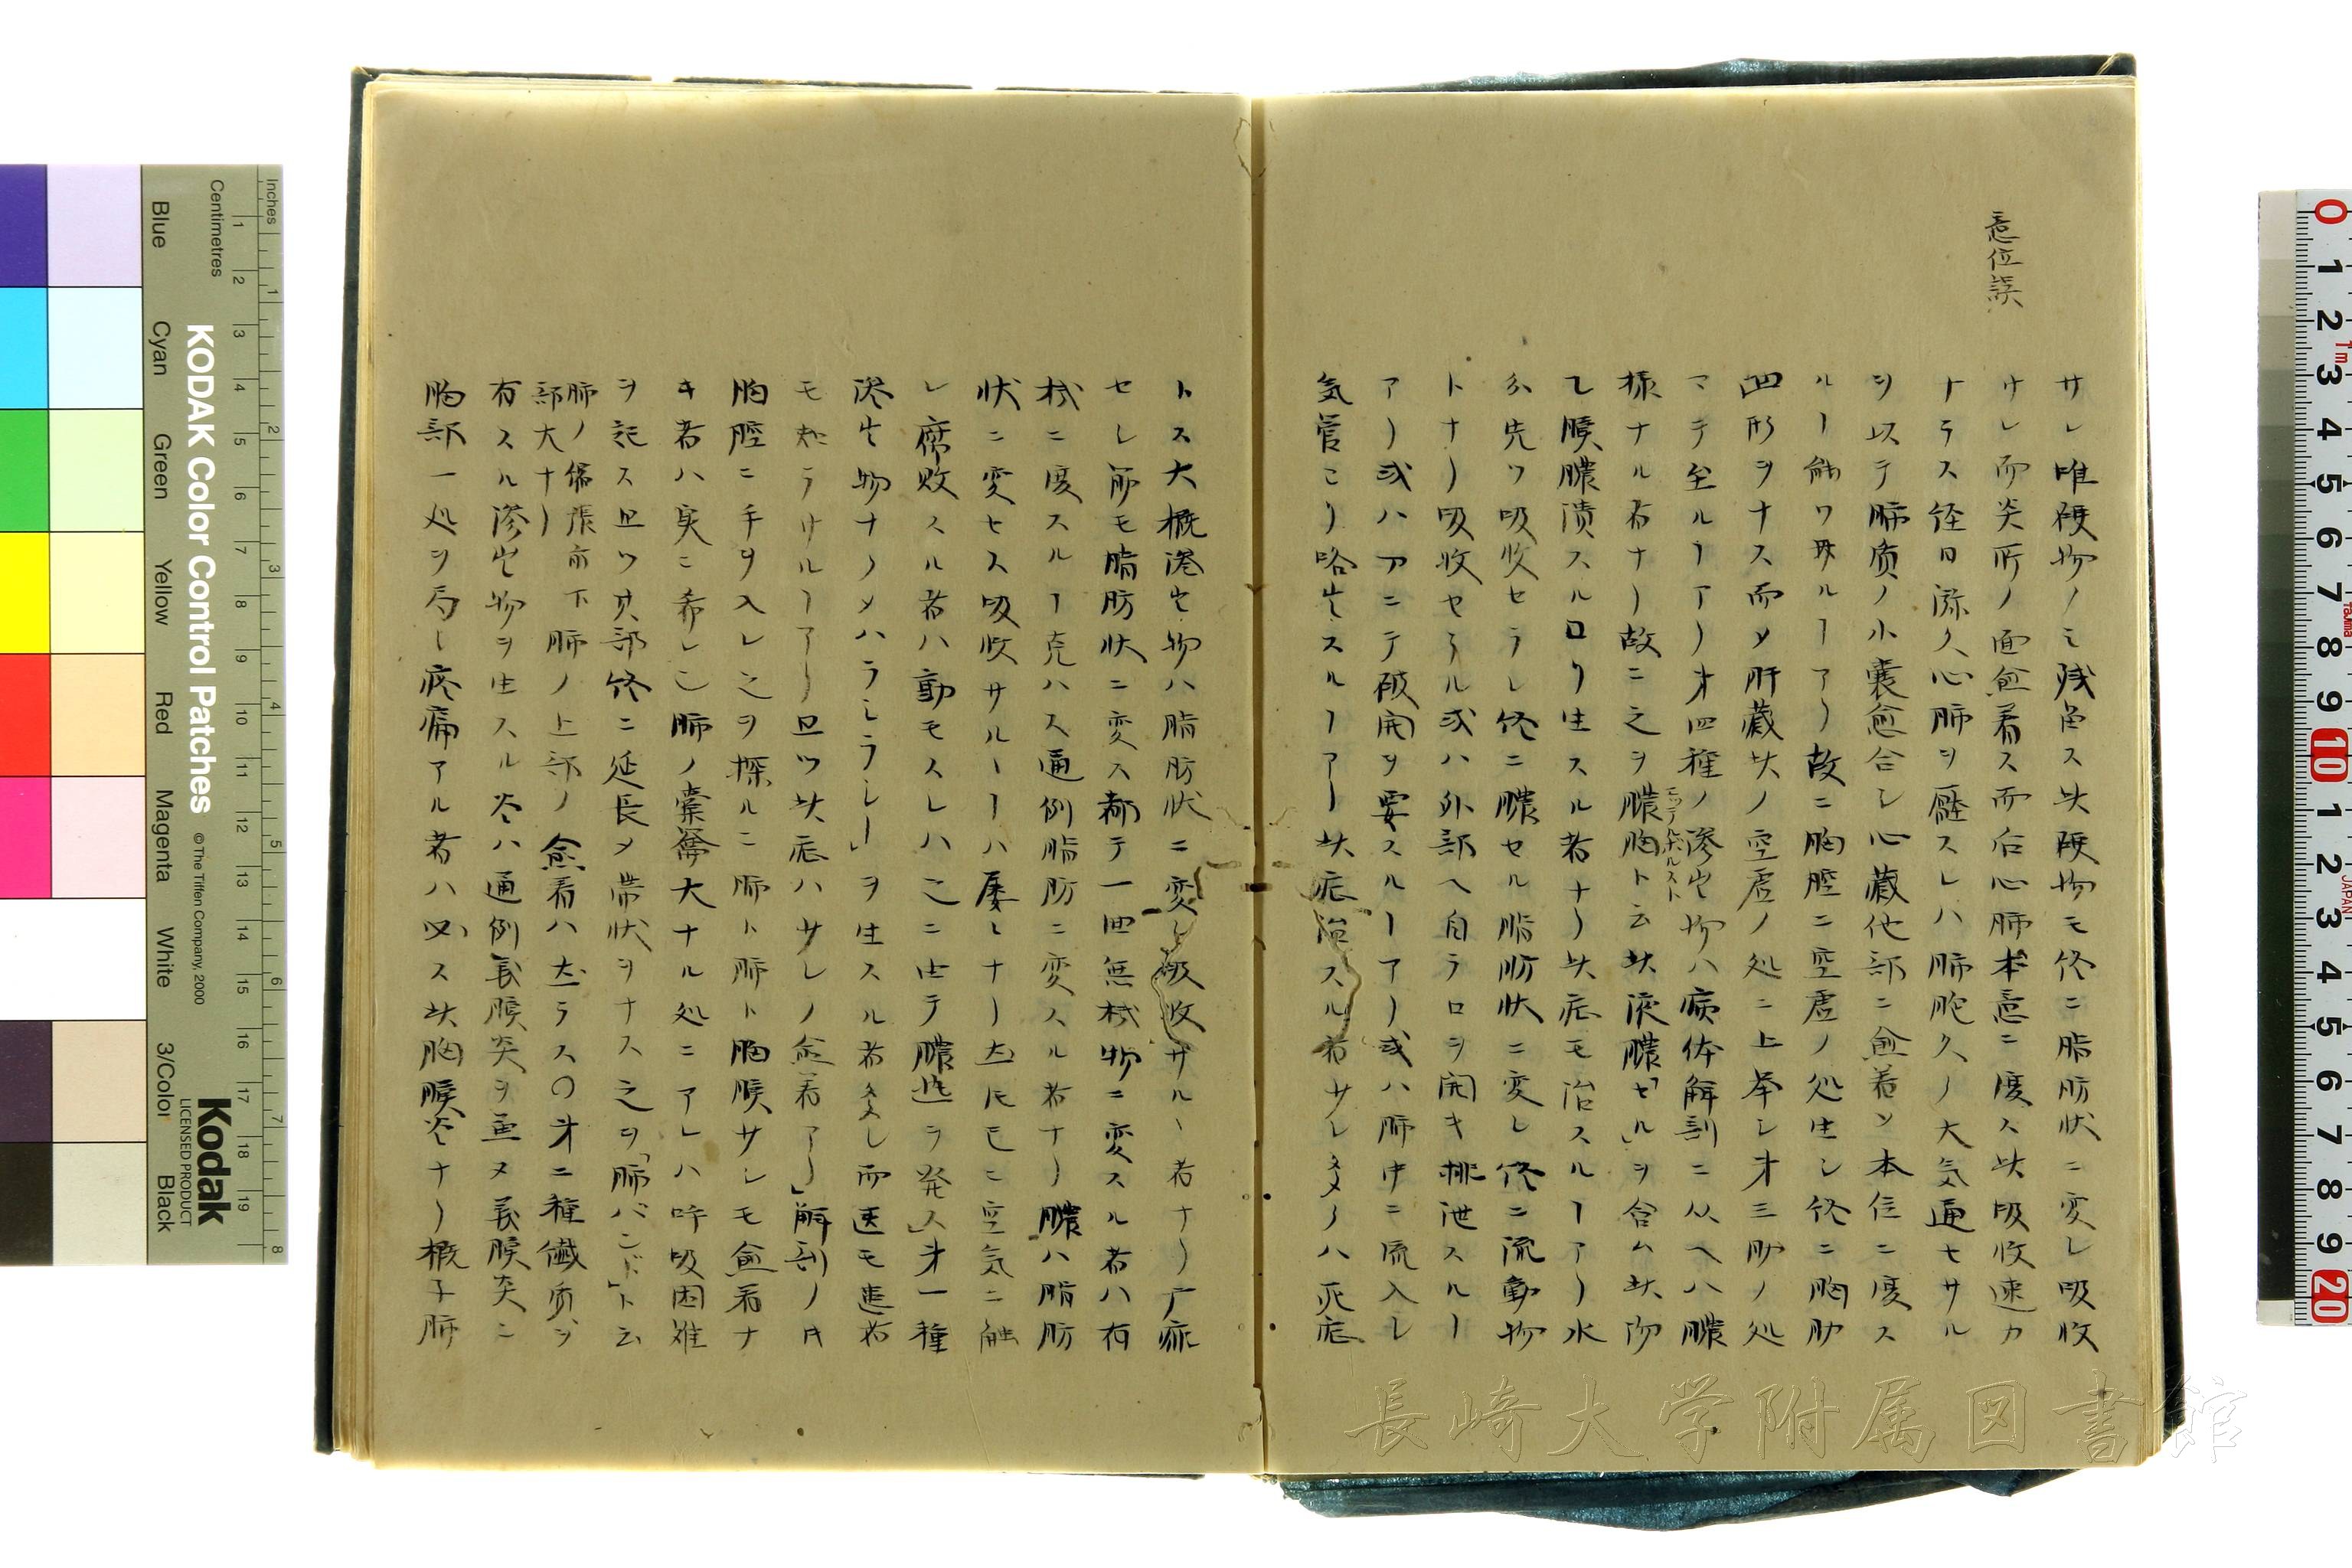 意位誤
サレ唯硬物ノミ残留ス此硬物モ終ニ脂肪状ニ変シ吸収
サレ而炎所ノ面愈着ス而后心肺本意ニ度ス此吸收速カ
ナラス経日漸久心肺ヲ壓スレハ肺胞久ノ大気通セサル
ヲ以テ肺质ノ小嚢愈合シ心藏他部ニ愈着シ本位ニ度ス
ルヿ能ワサルヿアリ故ニ胸腔ニ空虚ノ処生シ終ニ胸肋
凹形ヲナス而メ肝藏此ノ空虚ノ処ニ上举シ才三肋ノ処
マテ至ルヿアリ才四種ノ滲出物ハ病体解剖ニ从ヘハ膿
様ナル者ナリ故ニ之ヲ膿胸ト云此液膿「セル」ヲ含ム此
エッテルボルスト
乙膜膿漬スルロリ生スル者ナリ此症モ治スルヿアリ水
分先ツ吸收セラレ终ニ膿セル脂肪状ニ変シ终ニ流動物
トナリ吸收セラル或ハ外部ヘ自ラロヲ開キ排泄スルヿ
アリ或ハ刀ニテ破開ヲ要スルヿアリ或ハ肺中ニ流入シ
気管ヨリ咯出スルヿアリ此症治スル者サレ多クハ死症
トス大概滲出物ハ脂肪状ニ変シ吸收サルヽ者ナリ
セレ筋モ脂肪状ニ変ス都テ一回無機物ニ変スル者ハ有
機ニ度スルヿ克ハス通例脂肪ニ変スル者ナリ膿ハ脂肪
状ニ変セス吸收サルヽヿハ屡レナリ 空気ニ触
レ腐敗スル者ハ動モスレハ之ニ由テ膿 ヲ発ス」才一種
滲出物ナクメハラシラレー」ヲ生スル者多シ而医モ患者
モ知ラサルヿアリ且ツ此症ハサレノ愈着アリ」解剖ノ时
胸腔ニ手ヲ入レ之ヲ探ルニ肺ト肺ト胸膜サレモ愈着ナ
キ者ハ実ニ希レ也肺ノ 大ナル処ニアレハ呼吸困难
ヲ起ス且ツ其部终ニ延長メ帯状ヲナス之ヲ「肺バンド」ト云
肺ノ 張前下肺ノ上部ノ愈着ハ然ラス〇才二種纎质ヲ
部大ナリ
有スル滲出物ヲ生スル炎ハ通例義膜炎ヲ 又義膜炎ニ
胸部一処ヲ局シ疼痛アル者ハ必ス此胸膜炎ナリ概子肺